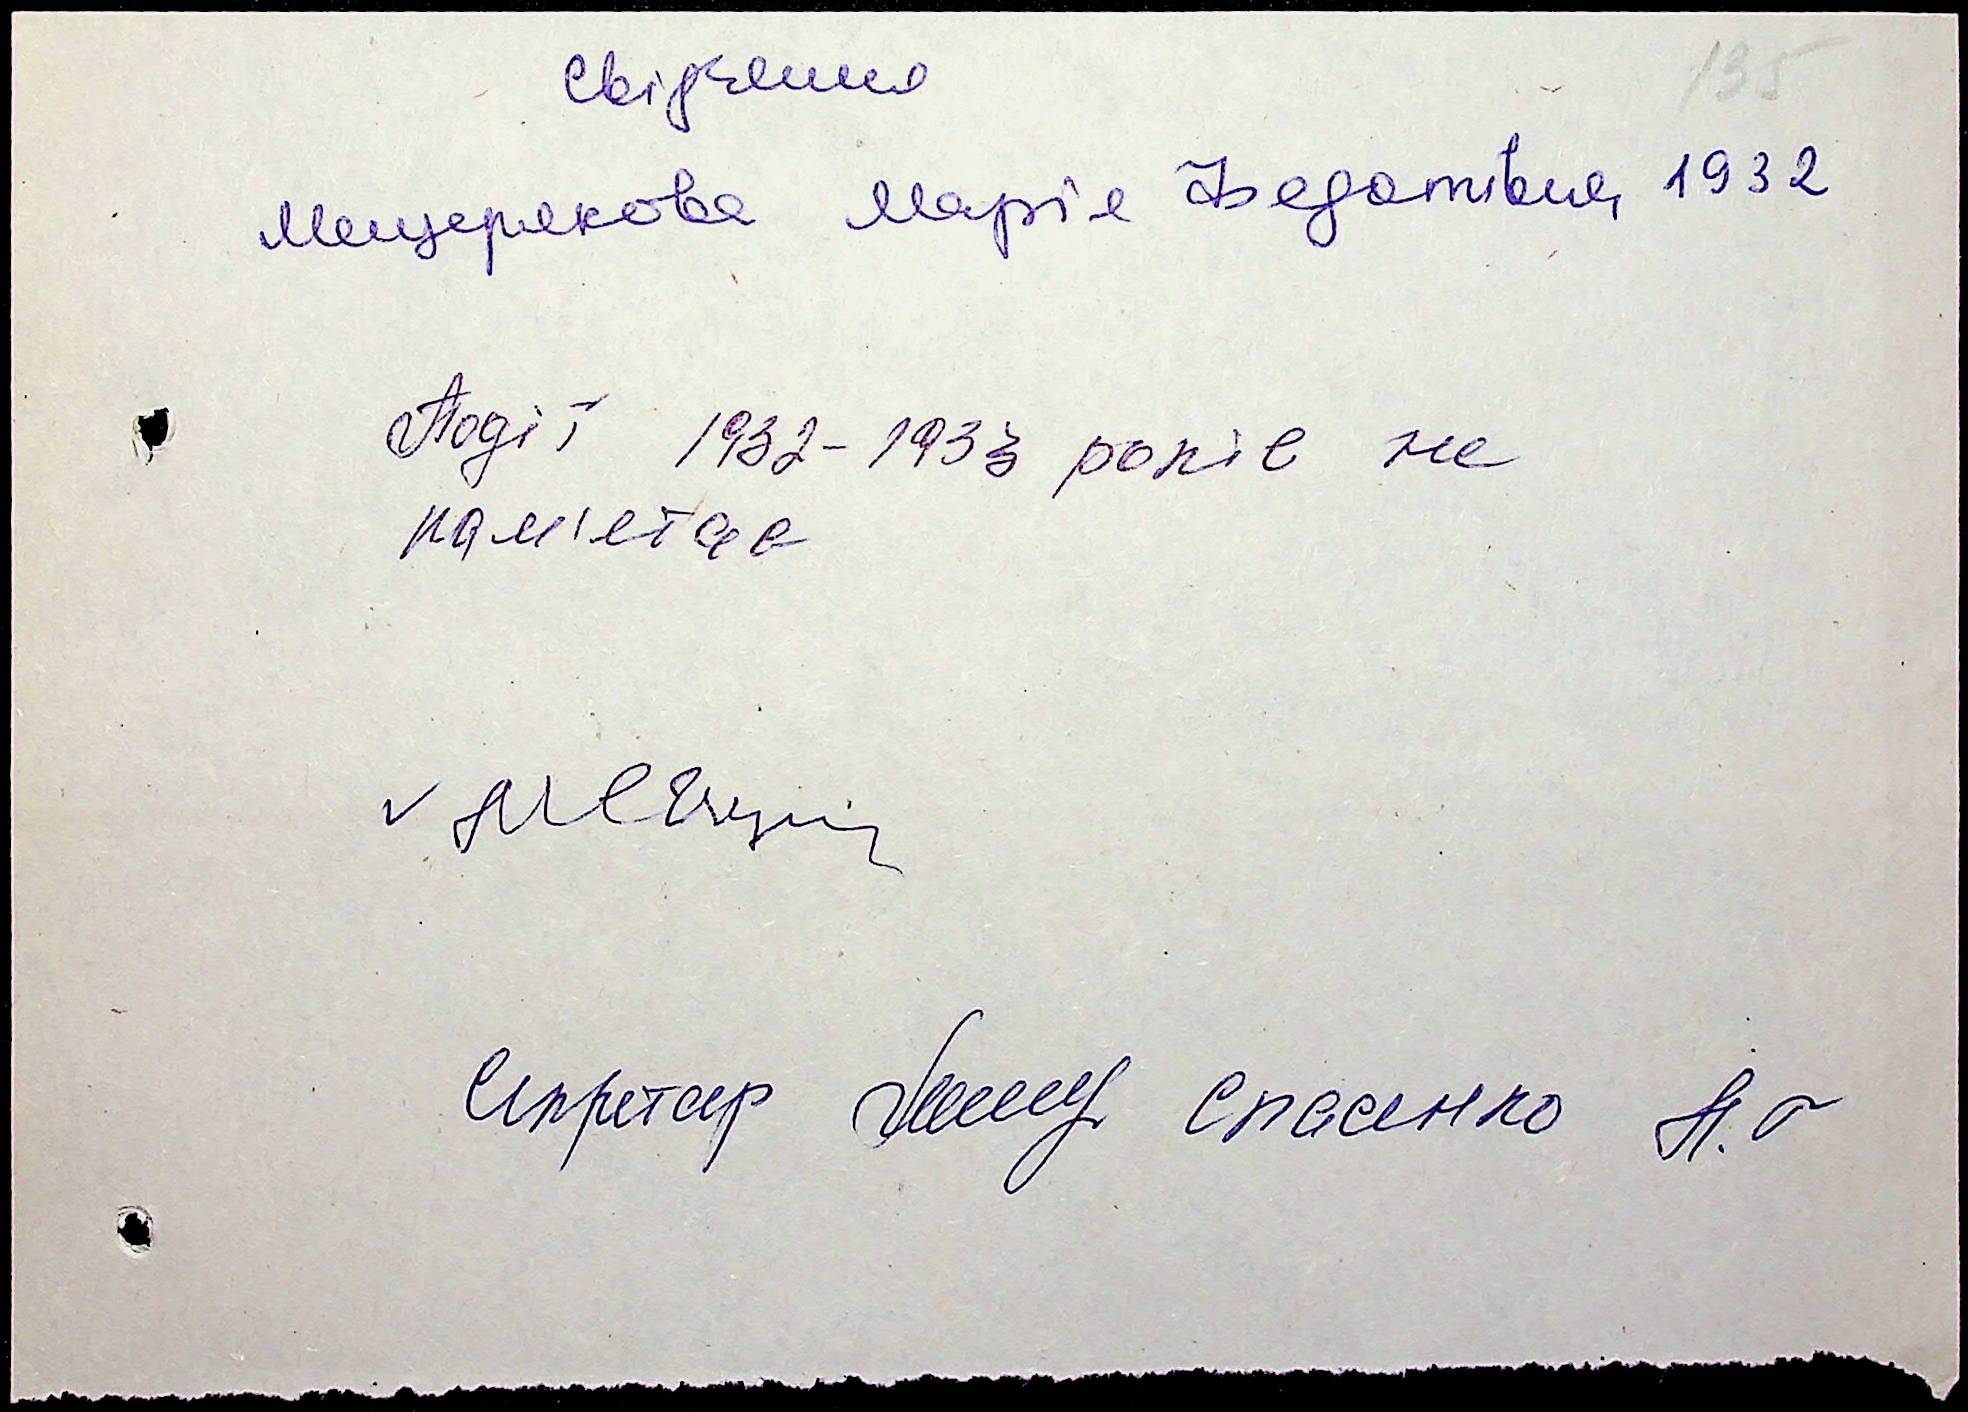 135
Свідчення
Мещерякова Марія Федотівна, 1932
Події 1932-1933 років не
пам'ятає
Секретар Спасенко Н. Г